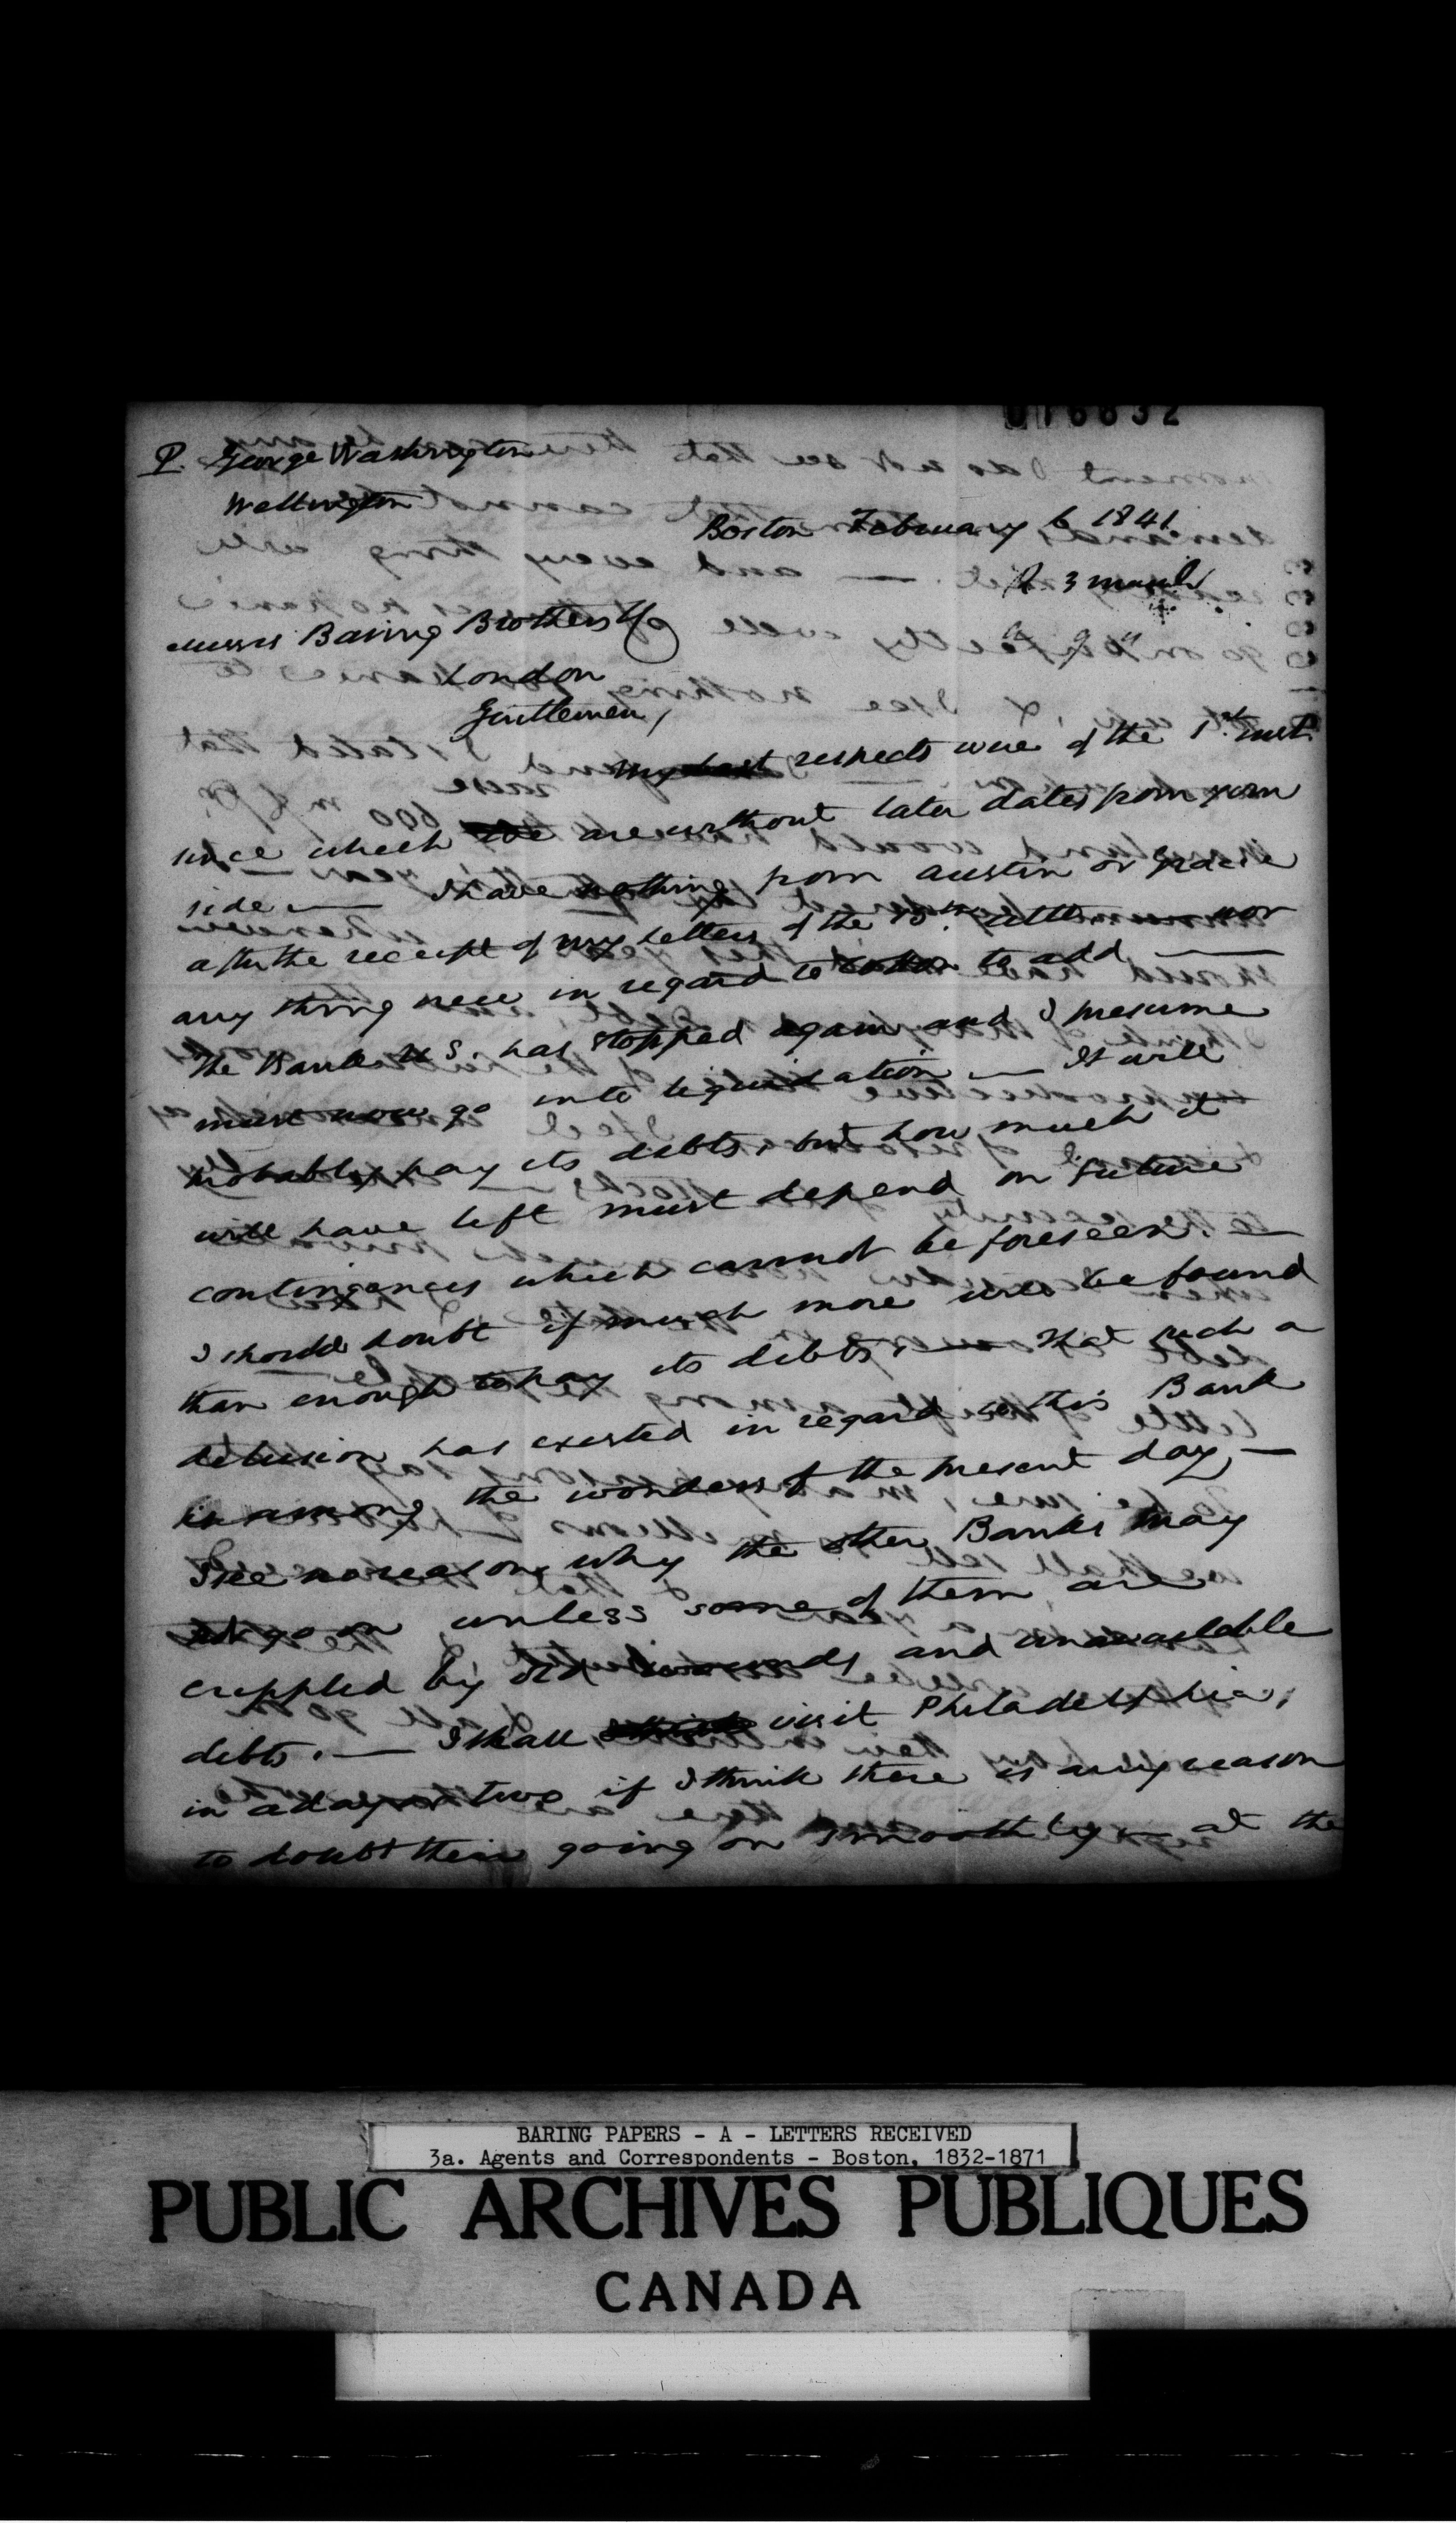 016632
P. George Washington
Wellington
Boston February 6 1841
R 3 March
Messrs Baring Brothers & Co
London
Gentlemen,
My last respects were of the 1st inst.
since which we are without later dates from your
side — I have nothing from Austin or Gracie
after the receipt of my letters of the 15th ulto — nor
any thing new in regard to to add —
The Bank U S. has stopped again and I presume
must now go into liquidation — It will
probably pay its debts, but how much it
will have left must depend on future
contingences which cannot be foreseen. —
I should doubt if much more will be found
than enough to pay its debts. — That such a
delusion has existed in regard to this Bank
is among the wonders of the present day, —
I see no reason why the other Banks may
not go on, unless some of them are
crippled by old and unavailable
debts. — I shall visit Philadelphia,
in a day or two if I think there is any reason
to doubt their going on smoothly — at the
BARING PAPERS - A - LETTERS RECEIVED
3a. Agents and Correspondents - Boston, 1832-1871
PUBLIC ARCHIVES PUBLIQUES
CANADA